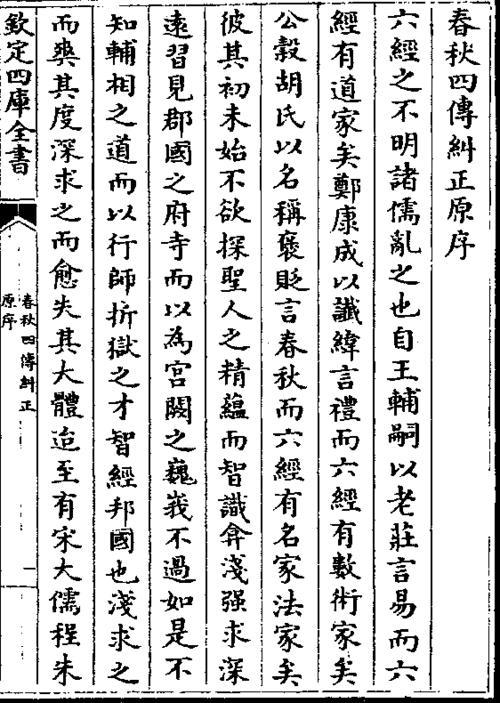 春秋四傳糾正原序
六經之不明諸儒亂之也自王輔嗣以老莊言易而六
經有道家矣鄭康成以讖緯言禮而六經有數術家矣
公榖胡氏以名稱褒貶言春秋而六經有名家法家矣
彼其初未始不欲探聖人之精蘊而智識弇淺强求深
逺習見郡國之府寺而以為宫闕之巍峩不過如是不
知輔相之道而以行師折獄之才智經邦國也淺求之
而爽其度深求之而愈失其大體迨至有宋大儒程朱
欽定四庫全書
春秋四傳糾正
原序
一